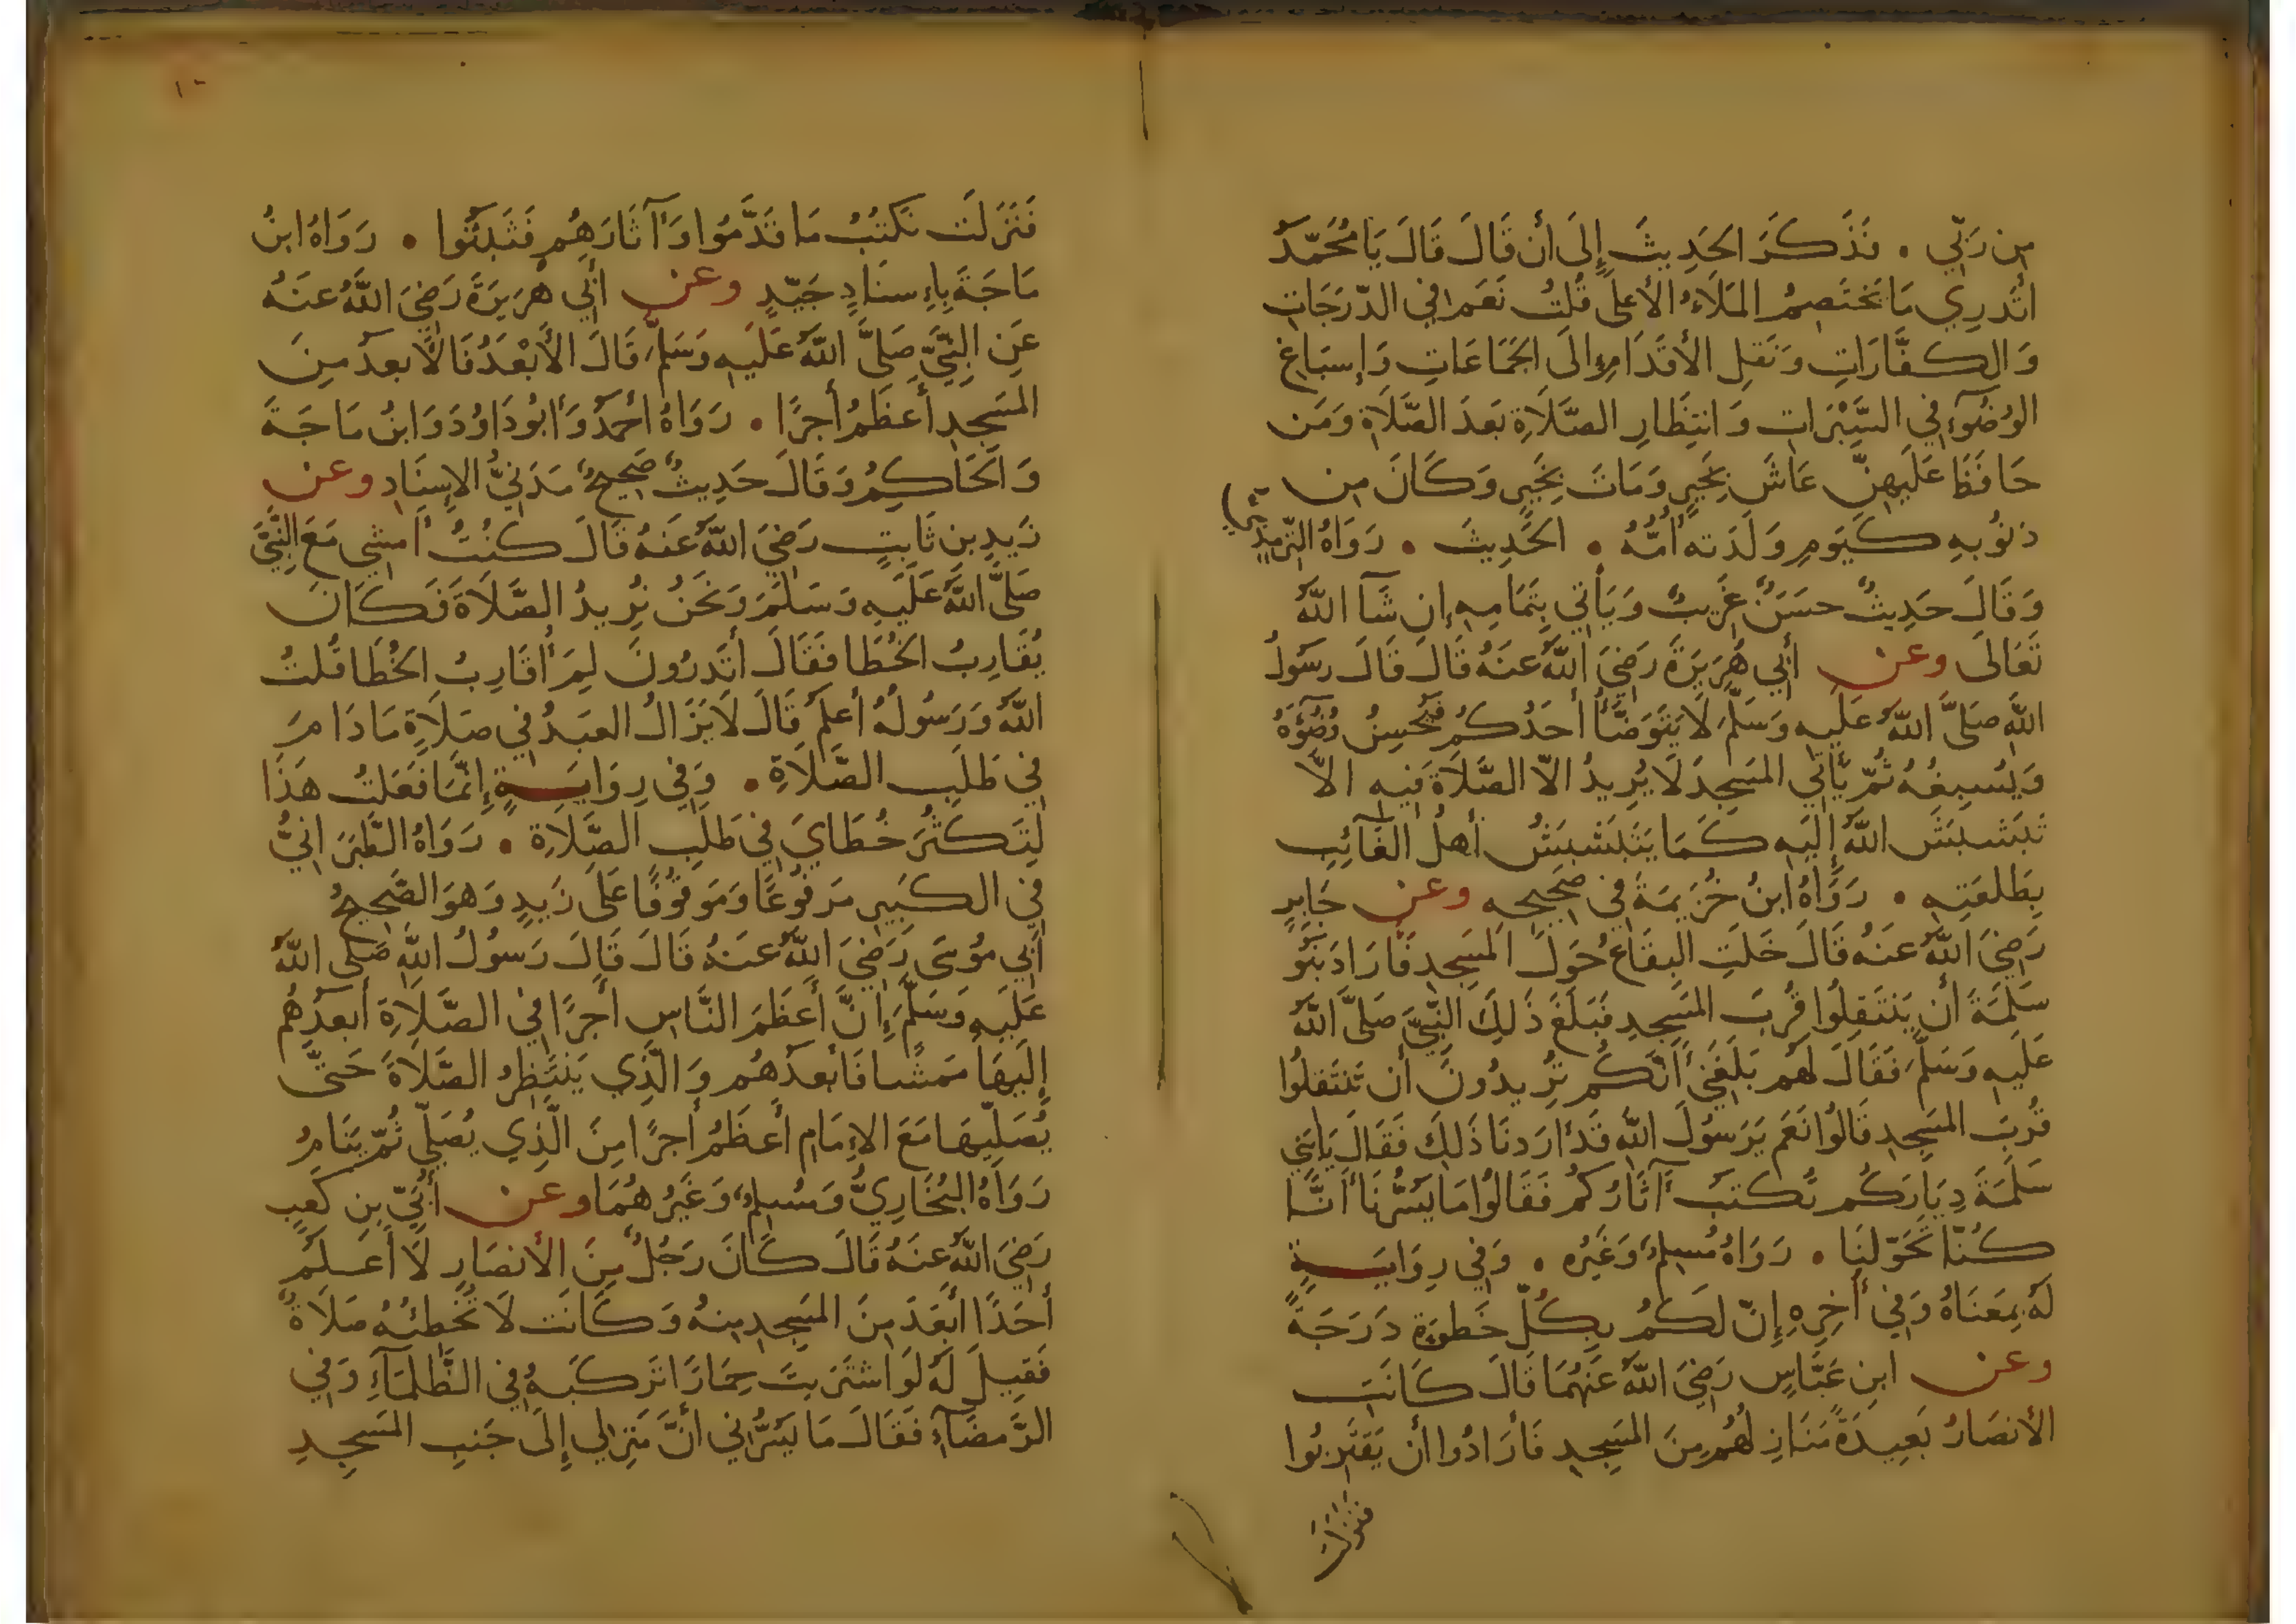 مِن رَبِّي . فَذَكَرَ الحَدِيثَ إِلَى أَن قَالَ قَالَ يَا مُحَمَّدُ
أَتَدرِي مَا يَختَصِمُ المَلَاءُ الأَعلَى قُلتُ نَعَم فِي الدَّرَجَاتِ
وَالكَفَّارَاتِ وَنَقلِ الأَقدَامِ إِلَى الجَمَاعَاتِ وَإِسبَاغِ
الوُضُوءِ فِي السَّبْرَاتِ وَانتِظَارِ الصَّلَاةِ بَعدَ الصَّلَاةِ وَمَن
حَافَظَ عَلَيهِنَّ عَاشَ بِخَيرٍ وَمَاتَ بِخَيرٍ وَكَانَ مِن
ذنُوبِهِ كَيَومِ وَلَدَته أُمُّهُ . الحَدِيثَ . رَوَاهُ التِّرمِذِي
وَقَالَ حَدِيثٌ حسَنٌ غَرِيبٌ وَيَأتِي بِتَمَامِهِ إِن شَآ اللَّهُ
تَعَالَى وعن أَبِي هُرَيرَةَ رَضِيَ اللَّهُ عَنهُ قَالَ قَالَ رسُولُ
اللَّهِ صَلَّى اللَّهُ عَلَيهِ وَسَلَّمَ لَا يَتَوَضَّأُ أَحَدُكُم فَيُحسِنُ وُضُوءَهُ
وَيُسبِغُهُ ثُمَّ يَأتِي المَسجِدَ لَا يُرِيدُ الاّ الصَّلَاةَ فِيهِ الاّ
تَبَشبَشَ اللَّهُ إِلَيهِ كَمَا يَتَبَشبَشُ أَهلُ الغَائِبِ
بِطَلعَتِهِ . رَوَاهُ ابنُ خُزَيمَةَ فِي صَحِيحِهِ وعن جَابِرٍ
رَضِيَ اللَّهُ عَنهُ قَالَ خَلَتِ البِقَاعُ حَولَ المَسجِدِ فَأَرَادَ بَنُو
سَلَمَةَ أَن يَنتَقِلُوا قُربَ المَسجِدِ فَبَلَغَ ذَلِكَ النَّبِيَّ صَلَّى اللَّهُ
عَلَيهِ وَسَلَّمَ فَقَالَ لَهُم بَلَغَنِي أَنَّكُم تُرِيدُونَ أَن تَنتَقِلُوا
قُربَ المَسجِدِ قَالُوا نَعَم يَرَسُولَ اللَّهِ قَد أَرَدنَا ذَلِكَ فَقَالَ يَا بَنِي
سَلَمَةَ دِيَارَكُم تُكتَب آثَارُكُم فَقَالُوا مَا يَسُرُّنَا أَنَّا
كُنَّا تَحَوَّلنَا . رَوَاهُ مُسلِمٌ وَغَيرُه . وَفِي رِوَايَةٍ
لَهُ بِمَعنَاهُ وَفِي أَخِرِهِ إِنَّ لَكُم بِكُلِّ خَطوَةٍ دَرَجَةً
وعن ابنِ عَبَّاسٍ رَضِيَ اللَّهُ عَنهُمَا قَالَ كَانَت
الأَنصَارُ بَعِيدَةً مَنَازِلُهُم مِنَ المَسجِدِ فَأَرَادُوا أَن يَقتَرِبُوا
فنزلت
١٠
فَنَزَلَت نَكتُبُ مَا قَدَّمُوا وَآثَارَهُم فَثَبَتُوا . رَوَاهُ ابنُ
مَاجَةَ بِإِسنَادٍ جَيِّدٍ وعن أَبِي هُرَيرَةَ رَضِيَ اللَّهُ عَنهُ
عَنِ النَّبِيِّ صَلَّى اللَّهُ عَلَيهِ وَسَلَّمَ قَالَ الأَبْعَدُ فَالأَبعَدُ مِنَ
المَسجِدِ أَعظَمُ أَجرًا . رَوَاهُ أَحمَدُ وَأَبُو دَاوُدَ وَابنُ مَاجَةَ
وَالحَاكِمُ وَقَالَ حَدِيثٌ صَحِيحٌ مَدَنِيُّ الإِسنَادِ وعن
زَيدِ بنِ ثَابِتٍ رَضِيَ اللَّهُ عَنهُ قَالَ كنتُ أَمشِي مَعَ النَّبِيِّ
صَلَّى اللَّهُ عَلَيهِ وَسَلَّمَ وَنَحنُ نُرِيدُ الصَّلَاةَ فَكَانَ
يُقَارِبُ الخُطَا فَقَالَ أَتَدرُونَ لِمَ أُقَارِبُ الخُطَا قُلتُ
اللَّهُ وَرَسُولُهُ أَعلَمُ قَالَ لَا يَزَالُ العَبدُ فِي صَلَاةٍ مَا دَامَ
فِي طَلَبِ الصَّلَاةِ . وَفِي رِوَايَةٍ إِنَّمَا فَعَلتُ هَذَا
لِتَكثُرَ خُطَايَ فِي طَلَبِ الصَّلَاةِ . رَوَاهُ الطَّبَرَانِيُّ
فِي الكَبِيرِ مَرفُوعًا وَمَوقُوفًا عَلَى زَيدٍ وَهوَ الصَّحِيحُ
أَبِي مُوسَى رَضِيَ اللَّهُ عَنهُ قَالَ قَالَ رَسُولُ اللَّهِ صَلَّى اللَّهُ
عَلَيهِ وَسَلَّمَ إِنَّ أَعظَمَ النَّاسِ أَجرًا فِي الصَّلَاةِ أَبعَدُهُم
إِلَيهَا مَمشًا فَأَبعَدُهُم وَالَّذِي يَنتَظِرُ الصَّلَاةَ حَتَّى
يُصَلِّيهَا مَعَ الإِمَامِ أَعظَمُ أَجرًا مِنَ الَّذِي يُصَلِّي ثُمَّ يَنَامُ
رَوَاهُ البُخَارِيُّ وَمُسلِمٌ وَغَيرُهُمَا وعن أُبَيِّ بنِ كَعبٍ
رَضِيَ اللَّهُ عَنهُ قَالَ كَانَ رَجُلٌ مِنَ الأَنصَارِ لَا أَعلَمُ
أَحَدًا أَبعَدَ مِنَ المَسجِدِ مِنهُ وَكَانَت لَا تُخطِئُهُ صَلَاةٌ
فَقِيلَ لَهُ لَو اشتَرَيتَ حِمَارًا تَركَبُهُ فِي الظَّلمَآءِ وَفِي
الرَّمضَآءِ فَقَالَ مَا يَسُرُّنِي أَنَّ مَنزِلِي إِلَى جَنبِ المَسجِدِ